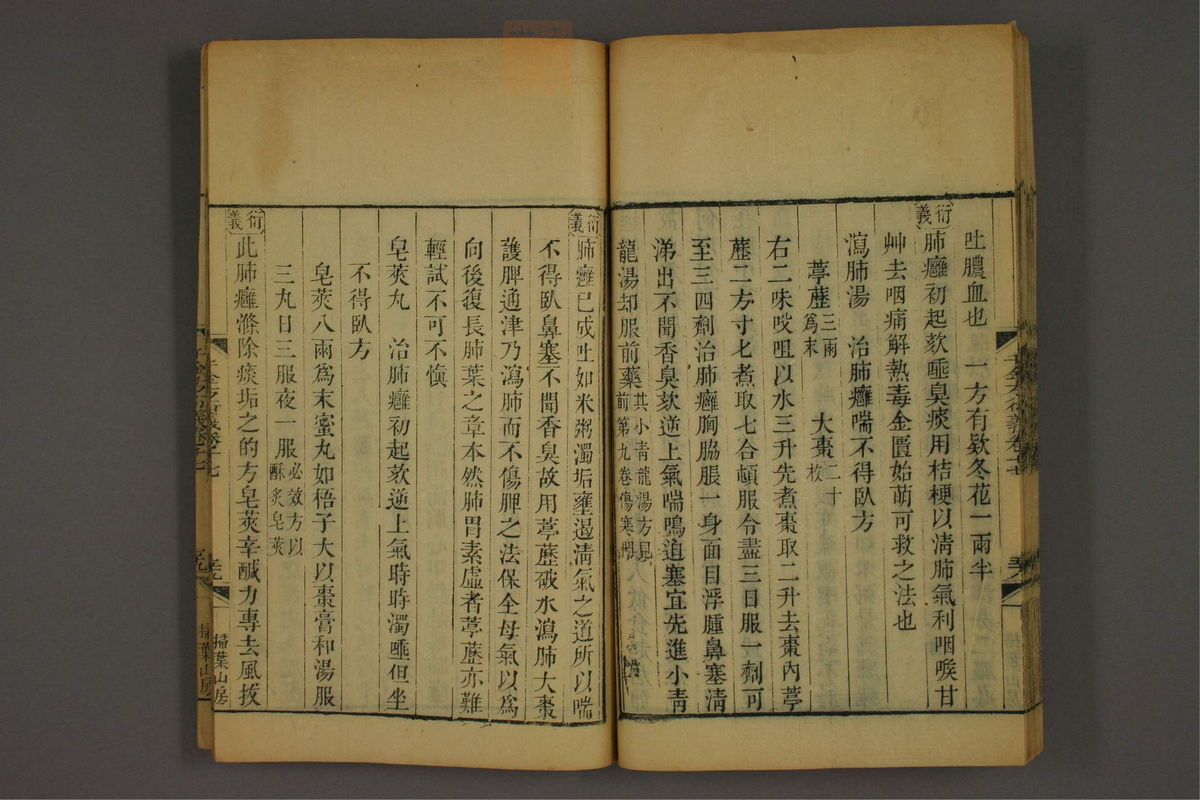 吐膿血也　一方有欵冬花一兩半
衍義
肺癰初起欬唾臭痰用桔梗以淸肺氣利咽喉甘
艸去咽痛解熱毒金匱始萌可救之法也
瀉肺湯　治肺癰喘不得臥方
葶藶三兩爲末　大棗二十枚
右二味㕮咀以水三升先煮棗取二升去棗內葶
藶二方寸匕煮取七合頓服令盡三日服一劑可
至三四劑治肺癰胸脇脹一身面目浮腫鼻塞淸
涕出不聞香臭欬逆上氣喘鳴迫塞宜先進小靑
龍湯却服前藥其小靑龍湯方見前第九卷傷寒門
衍義
肺癰已成吐如米粥濁垢壅遏淸氣之道所以喘
不得臥鼻塞不聞香臭故用葶藶破水瀉肺大棗
護脾通津乃瀉肺而不傷脾之法保全母氣以爲
向後復長肺葉之章本然肺胃素虛者葶藶亦難
輕試不可不愼
皂莢丸　治肺癰初起欬逆上氣時時濁唾但坐
不得臥方
皂莢八兩爲末蜜丸如梧子大以棗膏和湯服
三丸日三服夜一服必效方以酥炙皂莢
衍義
此肺癰滌除痰垢之的方皂莢辛鹹力專去風拔
千金方衍義卷十七
掃葉山房
掃葉山房